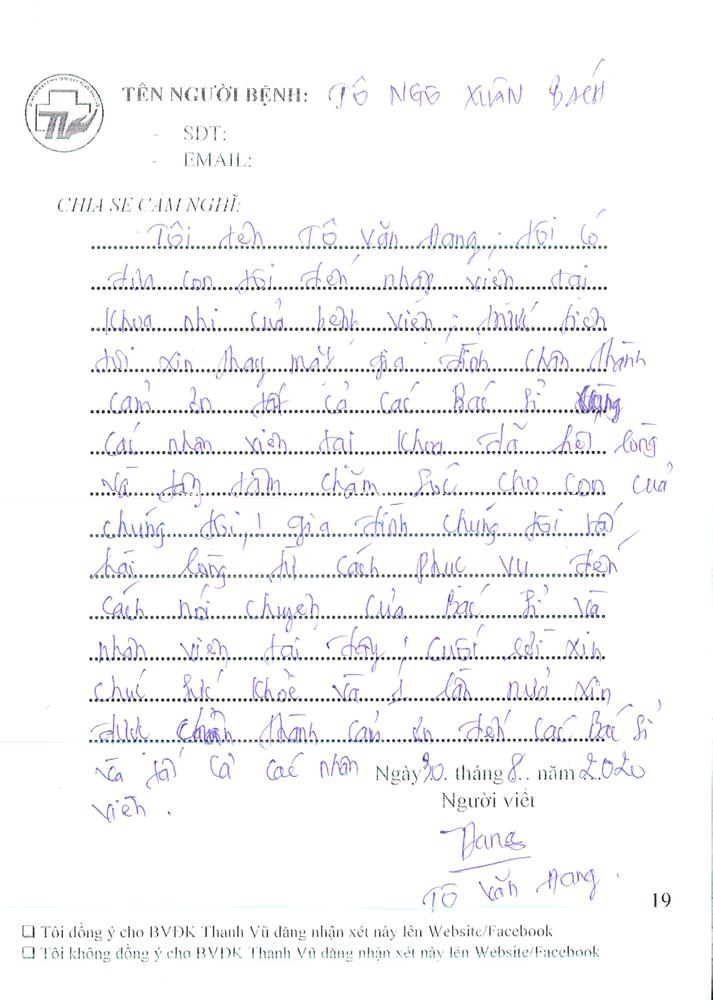 TÊN NGƯỜI BỆNH: TÔ NGÔ XUÂN BÁCH
- SDT:
- EMAIL:
CHIA SẺ CẢM NGHĨ:
Tôi tên Tô Văn Đang, tôi có
đưa con tôi đến nhập viện tại
khoa nhi của bệnh viện,
tôi xin thay mặt gia đình chân thành
cảm ơn tất cả các Bác sĩ cùng
các nhân viên tại khoa đã hết lòng
và tận tâm chăm sóc cho con của
chúng tôi, ! gia đình chúng tôi rất
hài lòng từ cách phục vụ đến
cách nói chuyện của Bác sĩ và
nhân viên tại đây, cuối lời xin
chúc sức khỏe và 1 lần nữa xin
được chân thành cảm ơn đến các Bác sĩ
và tất cả các nhân
viên.
Ngày 30. tháng 8.. năm 2.020
Người viết
Đang
Tô Văn Đang.
19
☐ Tôi đồng ý cho BVĐK Thanh Vũ đăng nhận xét này lên Website/Facebook
☐ Tôi không đồng ý cho BVĐK Thanh Vũ đăng nhận xét này lên Website/Facebook